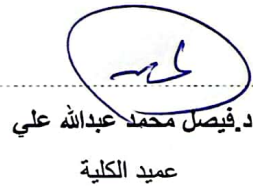 د.فيصل محمد عبدالله علي
عميد الكلية